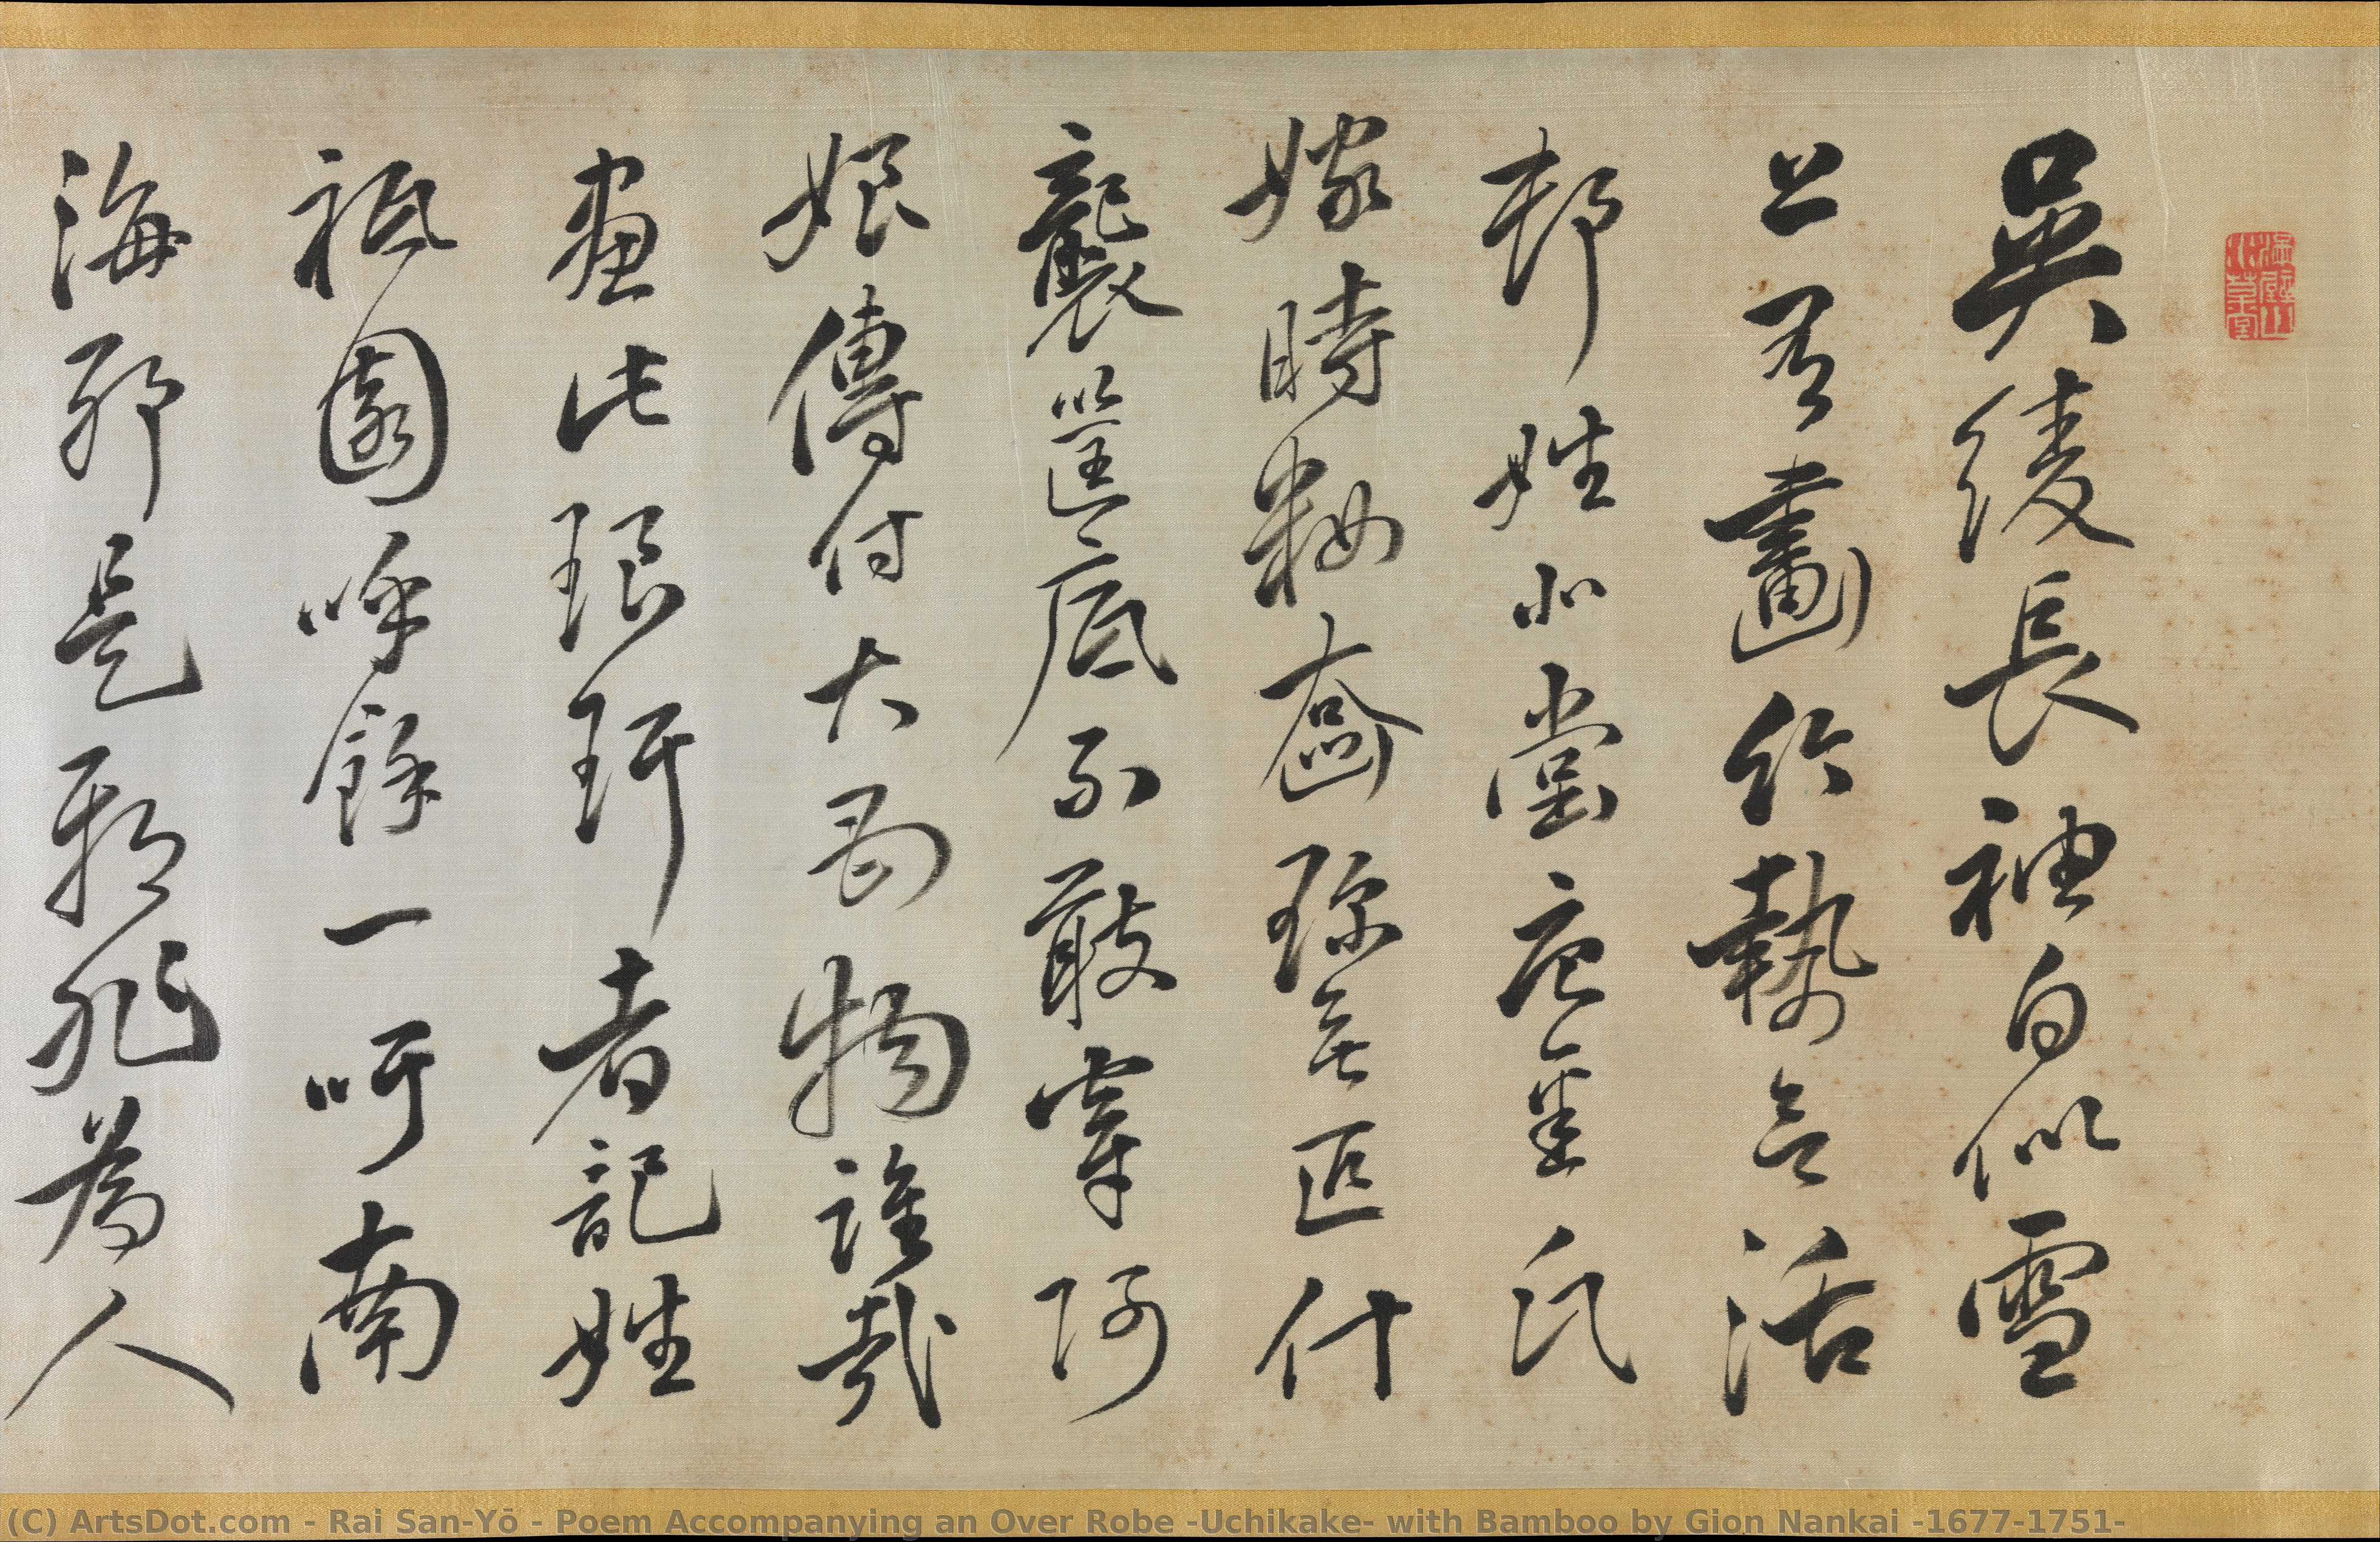 吳綾長袖白似雪
上有畫竹勢活
邨姓小氏
嫁時粧奩珍無匹什
襲筐底不敢穿阿
娘傳付大母物誰哉
畫此琅玕者記姓
祇園呼餘一呵南
海耶是耶非為人
(C) ArtsDot.com - Rai San-Yō - Poem Accompanying an Over Robe -Uchikake- with Bamboo by Gion Nankai -1677-1751-